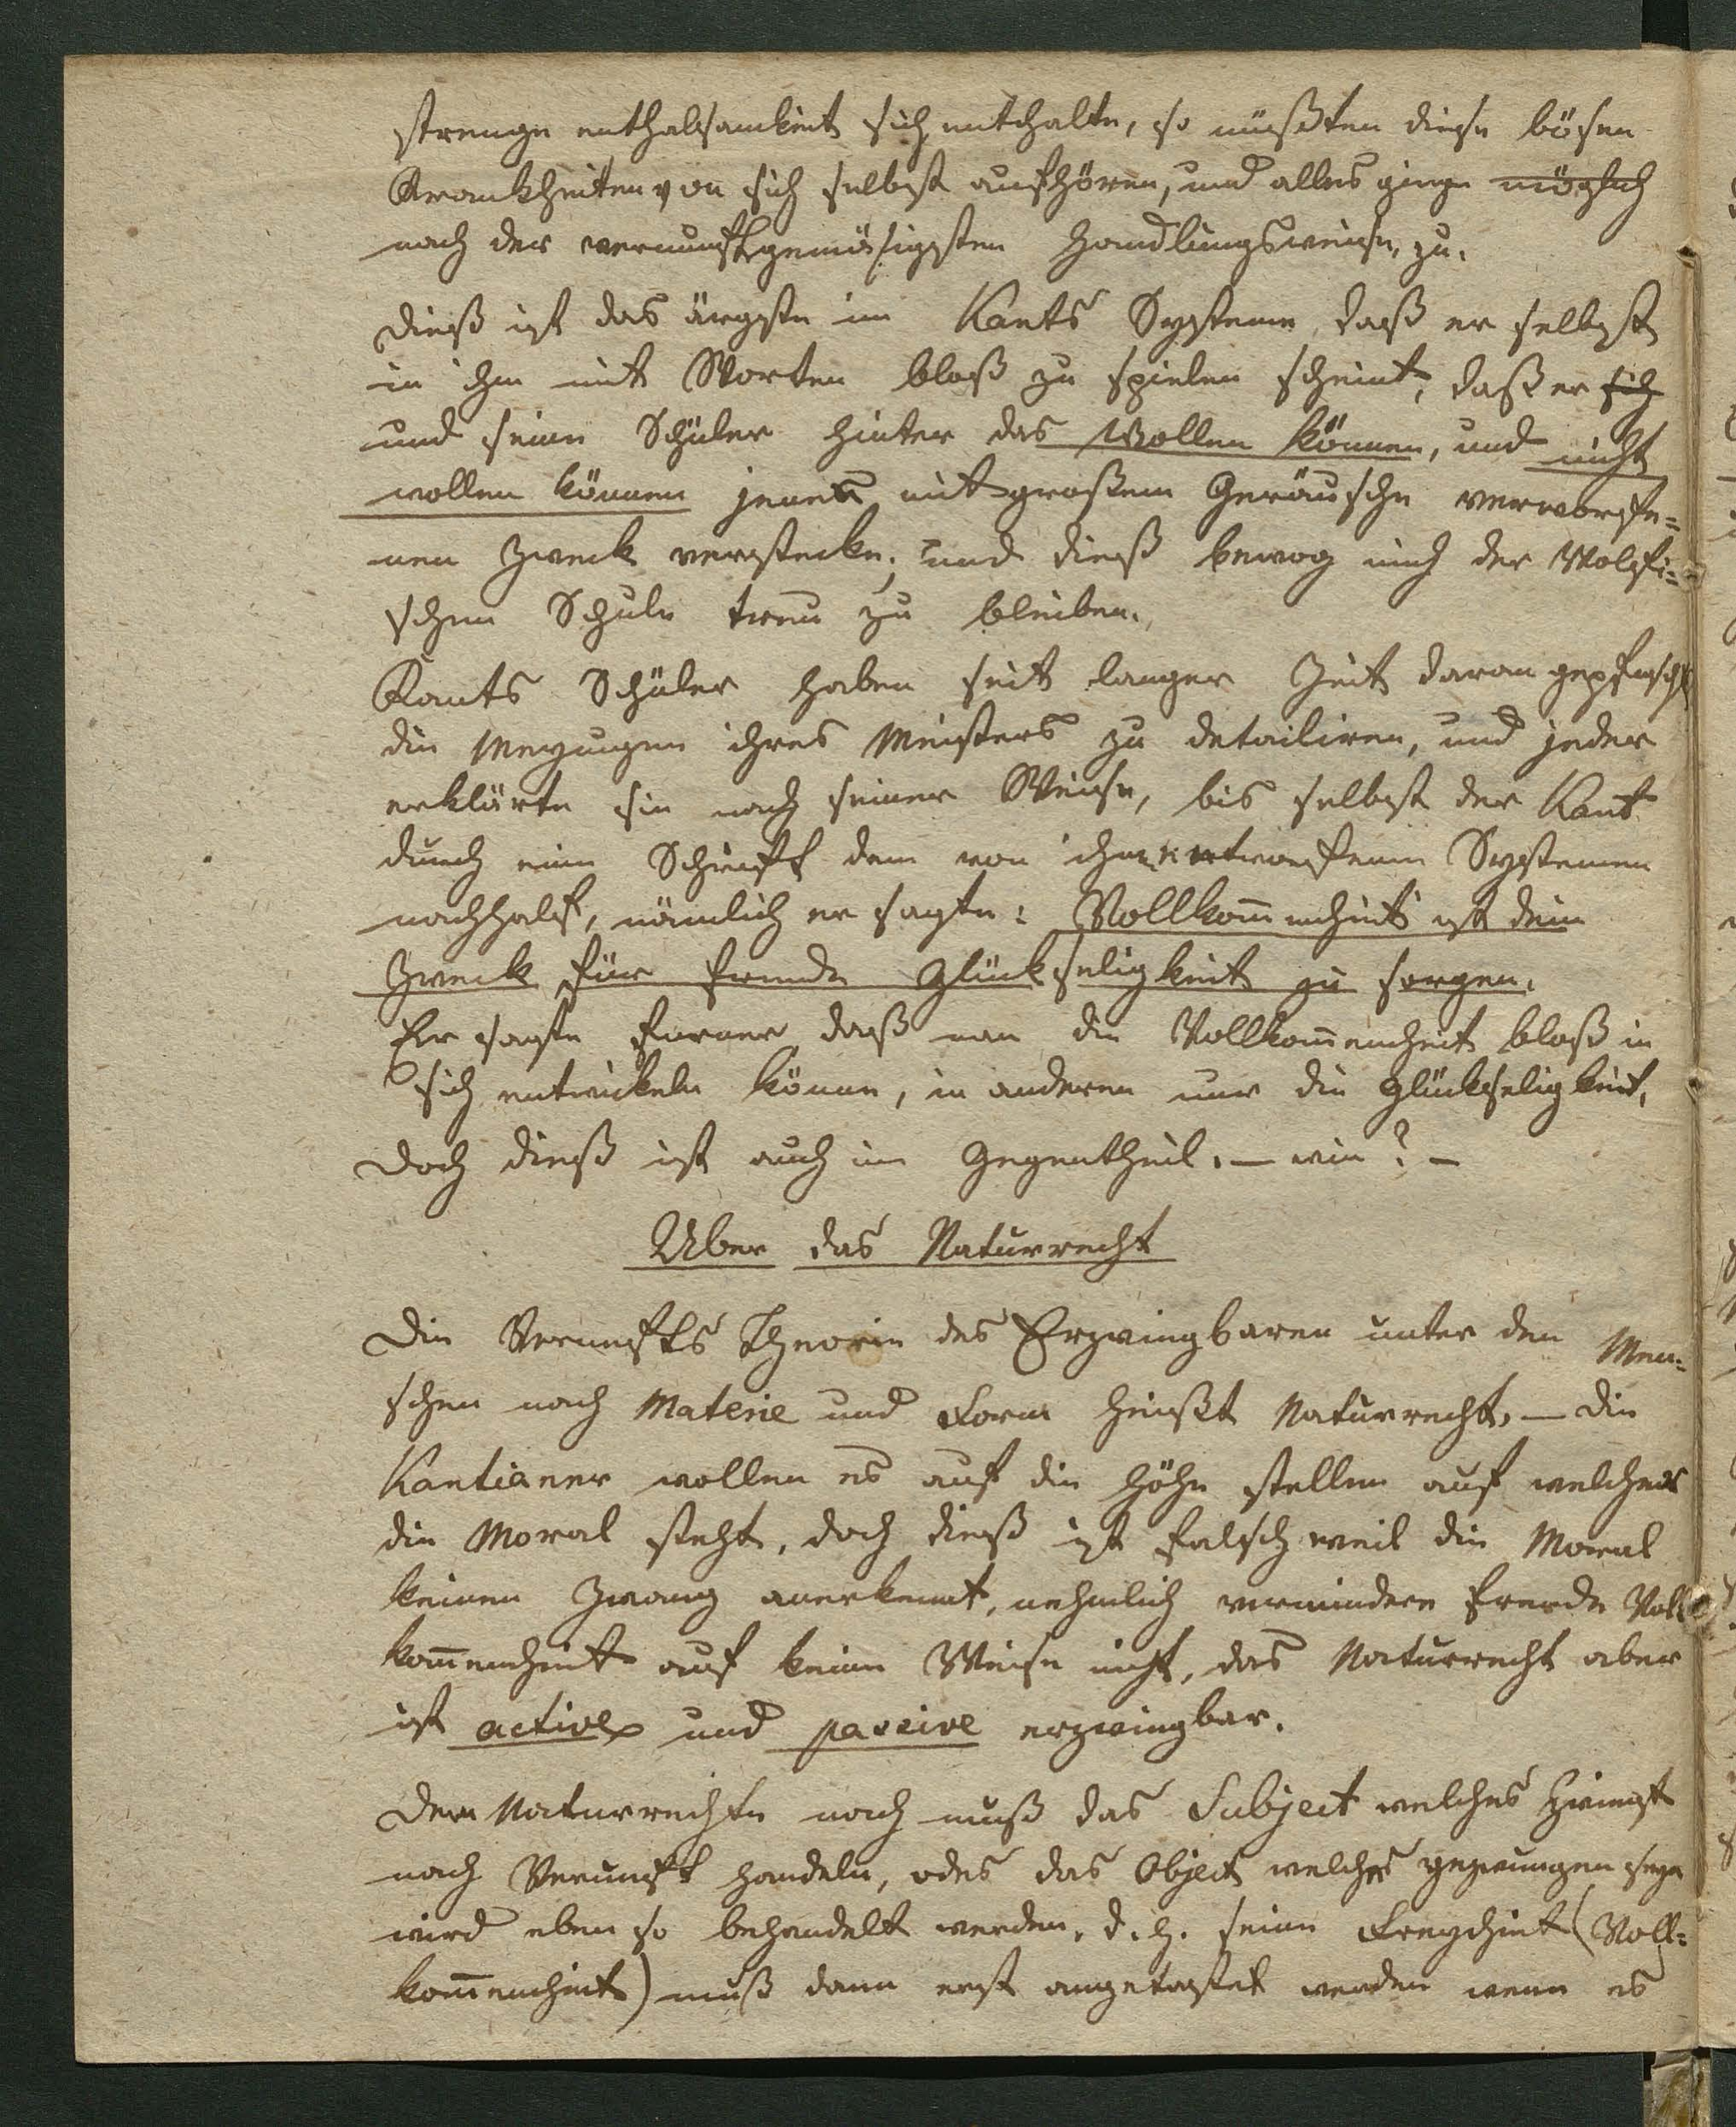 strenge enthaltsamkeit sich enthalte, so müßten diese bösen
Krankheiten von sich selbst aufhören, und alles ginge möglich
nach der vernunftgemäsigsten Handlungsweise, zu.
Dieß ist das ärgste im Kants Systeme, daß er selbst
in ihm mit Worten bloß zu spielen scheint, daß er sich
und seine Schüler hinter das Wollen können, und nicht
wollen können jenen mit großem Geräusche verworfe=
nen Zweck verstecke; und dieß bewog mich der Wolfi=
schen Schule treu zu bleiben.
Kants Schüler haben seit langer Zeit daran gepfuscht
die Meyungen ihres Meisters zu detailiren, und jeder
erklärte sie nach seiner Weise, bis selbst der Kant
durch eine Schrift dem von ihm entworfenen Systemen
nachhalf, nämlich er sagte: Vollkom̅enheit ist dein
Zweck für fremde Glückseligkeit zu sorgen.
Er sagte ferner daß man die Vollkom̅enheit bloß in
sich entwickeln könne, in anderen nur die Glückseligkeit,
Doch dieß ist auch im Gegentheil. – wie? –
Uber das Naturrecht
Die Vernunfts Theorie des Erzwingbaren unter den Men=
schen nach Materie und Form heißt Naturrecht, – die
Kantianer wollen es auf die Höhe stellen auf welcher
die Moral steht, doch dieß ist falsch weil die Moral
keinen Zwang anerkennt, nehmlich vermindere fremde Voll
kom̅enheit auf keine Weise nicht, das Naturrecht aber
ist active und passive erzwingbar.
Dem Naturrechte nach muß das Subject welches Zwingt
nach Vernunft handeln, oder das Object welches gezwungen seyn
wird eben so behandelt werden. d. h. seine Freyheit (Voll=
kom̅enheit) muß dann erst angetastet werden wenn es